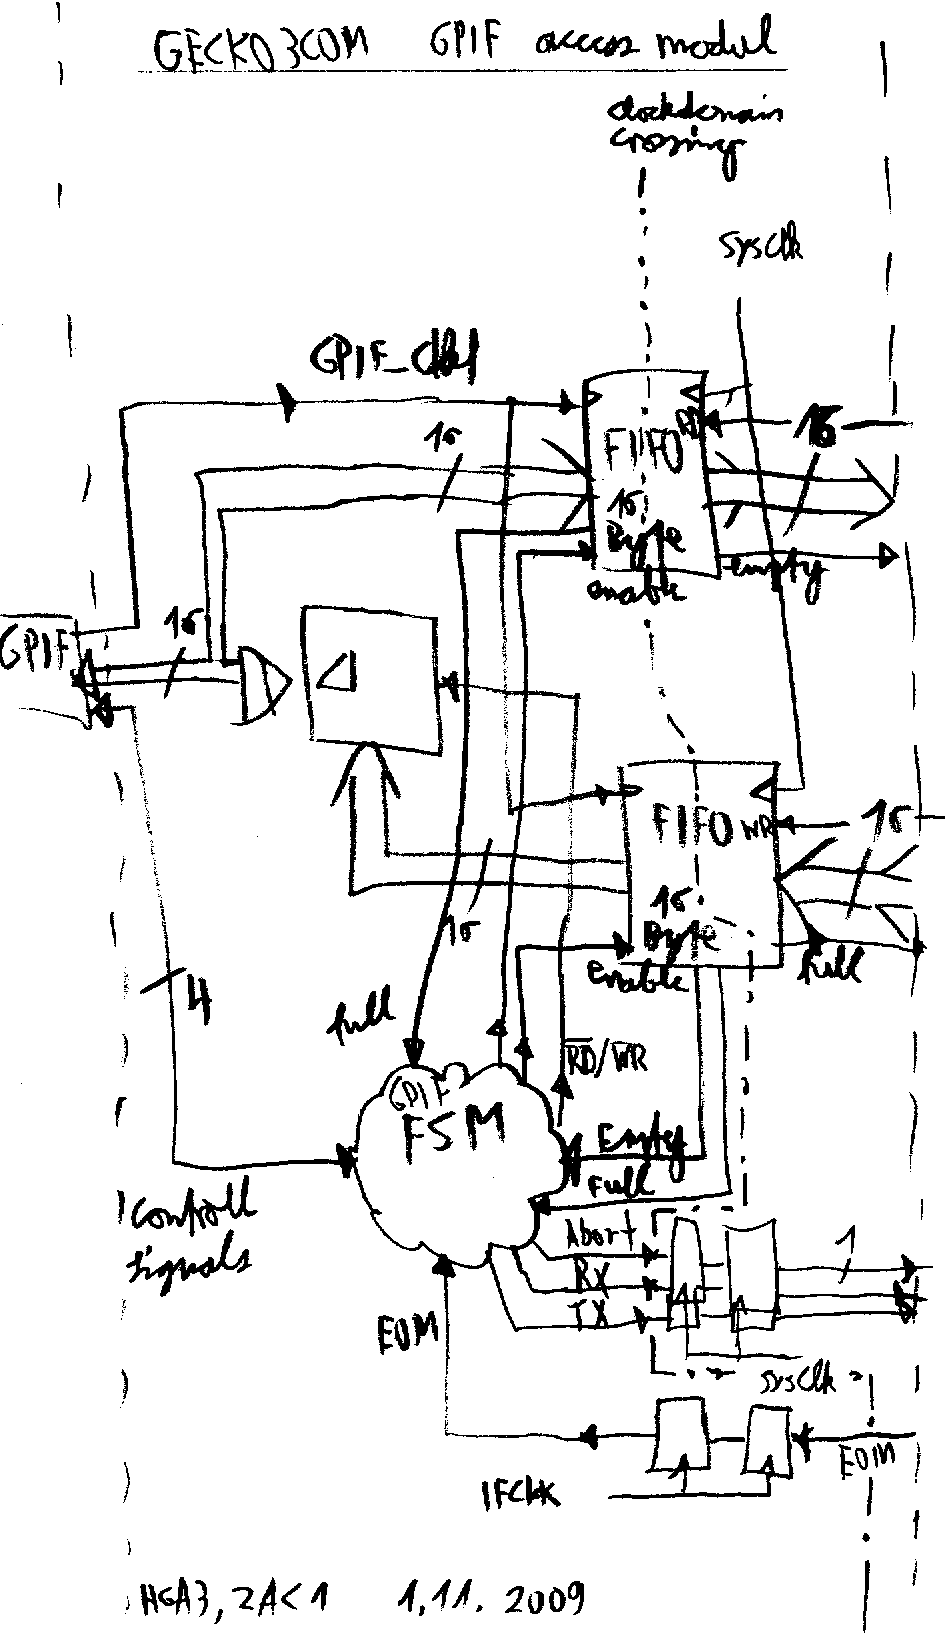 GECKO3COM GPIF access modul
clockdomain
crossing
SysClk
16
FIFO
RD
16
16
Byte
enable
empty
GPIF
16
FIFO
WR
16
16
Byte
enable
full
16
4
full
RD/WR
GPIF
FSM
Empty
Full
Controll
signals
Abort
RX
TX
1
EOM
sysClk
EOM
IFClk
1.11.2009